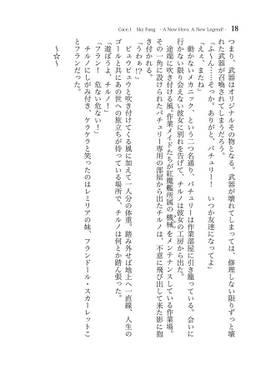 Case.1　Sky Fang　－A New Hero. A New Legend－　18
つまり、武器はオリジナルその物となる。武器が壊れてしまっては、修理しない限りずっと壊
れた武器が召喚されてしまうだろう。
「ふーん……そっか、ありがとっ、パチュリー！　いつか友達になってよ」
「ええ、またね」
動かないメカニック、という二つ名通り、パチュリーは作業部屋に引き籠っている。会いに
行かない限り会えない彼女に別れを告げて、チルノは彼女の工房から出た。
途端に吹き付ける風、作業メイドたちが紅魔艦所属の機械をメンテナンスしている作業場。
その一角に設けられたパチュリー専用の部屋から出たチルノは、不意に飛び出して来た影に抱
き付かれる。
「うわぁ!?」
ビュウビュウと吹き付けてくる風に加えて一人分の体重。踏み外せば地上へ一直線、人生の
ゴールと共にあの世への旅立ちが待っている場所で、チルノは何とか踏ん張った。
「遊ぼうよ、チルノ！」
「フラン！　危ない危ない！」
チルノにしがみ付き、ケラケラと笑ったのはレミリアの妹、フランドール・スカーレットこ
とフランだった。
～☆～